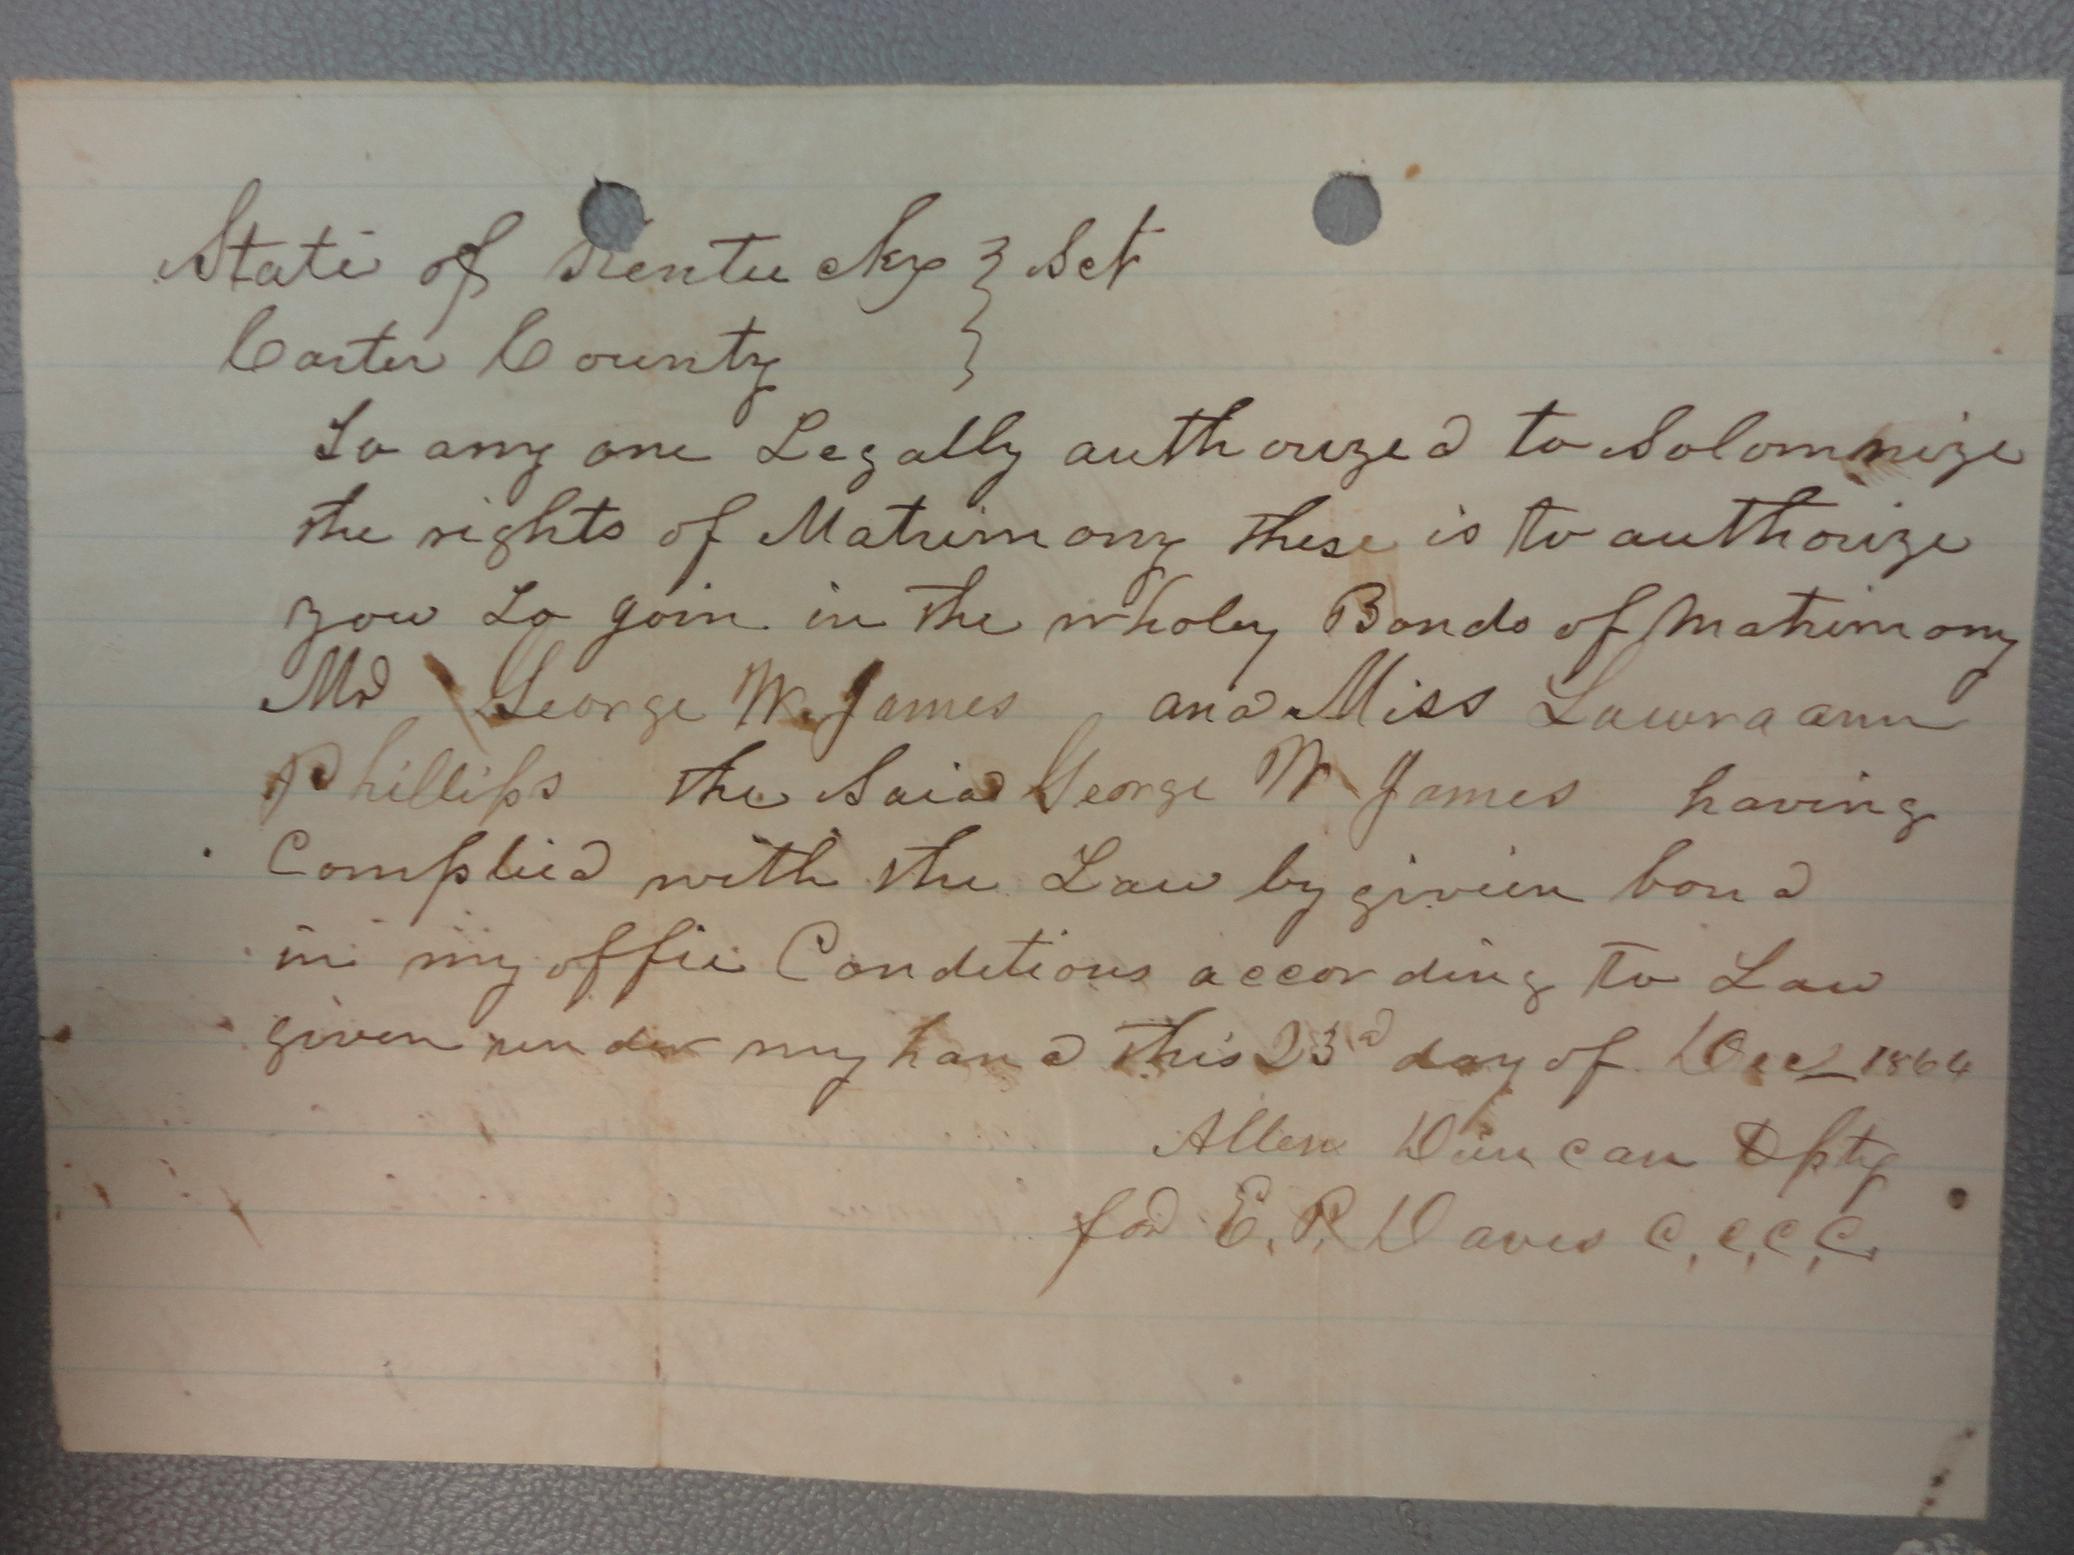 State of Kentucky } Sct
Carter County }
To any one Legally authorized to Solomnize
the rights of Matrimony these is to authorize
you to join in the wholey Bonds of Matrimony
Mr George W. James and Miss Lawra ann
Phillips the Said George W James having
Complied with the Law by givien bond
in my offie Conditions according to Law
given under my hand this 23d day of Dec 1864
Allen Duncan Dpty
for E. R. Davis C.C.C.C.